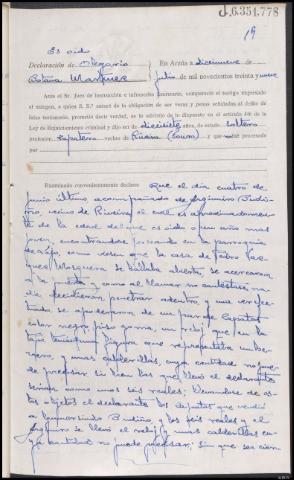 J.6.351.778
19
Es oido
Declaración de Olegario
Martinez
En Arzúa a diecinueve de
Julio de mil novecientos treinta y nueve
Ante el Sr. Juez de instrucción e infrascrito Secretario, comparece el testigo expresado
al margen, a quien S. S.ª enteró de la obligación de ser veraz y penas señaladas al delito de
falso testimonio, prometió decir verdad, se le advirtió de lo dispuesto en el artículo 446 de la
Ley de Enjuiciamiento criminal y dijo ser de diecisiete años, de estado soltero
profesion zapatero vecino de Riveira (Touro) y que procesado
por
Examinado convenientemente declara Que el dia cuatro de
junio último acompañado de Argimiro Budi
ño, vecino de Riveira, el cual es aproximadamen
te de la edad del que es oido o un año mas
joven, encontrandose paseando en la parroquia
de como vieren que la casa de Pedro Vaz
quez Mosquera se hallaba abierta, se acercaron
a la puerta y como al llamar no contestasi na
die decidieron penetrar adentro, y una vez efec
tuado se apoderaron de un par de zapatos
color negro piso goma, un reloj que en la
tapa tenia una figura que representaba un bo
rrego, y unas calderillas, cuya cantidad no pue
de precisar si bien las que llevó el declarante
serian como unos seis reales; llevandose de es
tos objetos el declarante los zapatos que vendió
a Gumersindo Budiño, y los seis reales y el
Argimiro se llevó el reloj y unas calderillas cu
ya cantidad no puede precisar; sin que sea cier